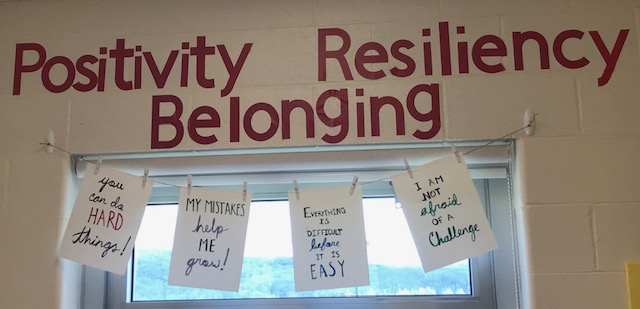 Positivity Resiliency
Belonging
you
can do
HARD
things!
MY MISTAKES
help
ME
grow!
EVERYTHING
IS
DIFFICULT
before
IT IS
EASY
I AM
NOT
afraid
OF A
Challenge